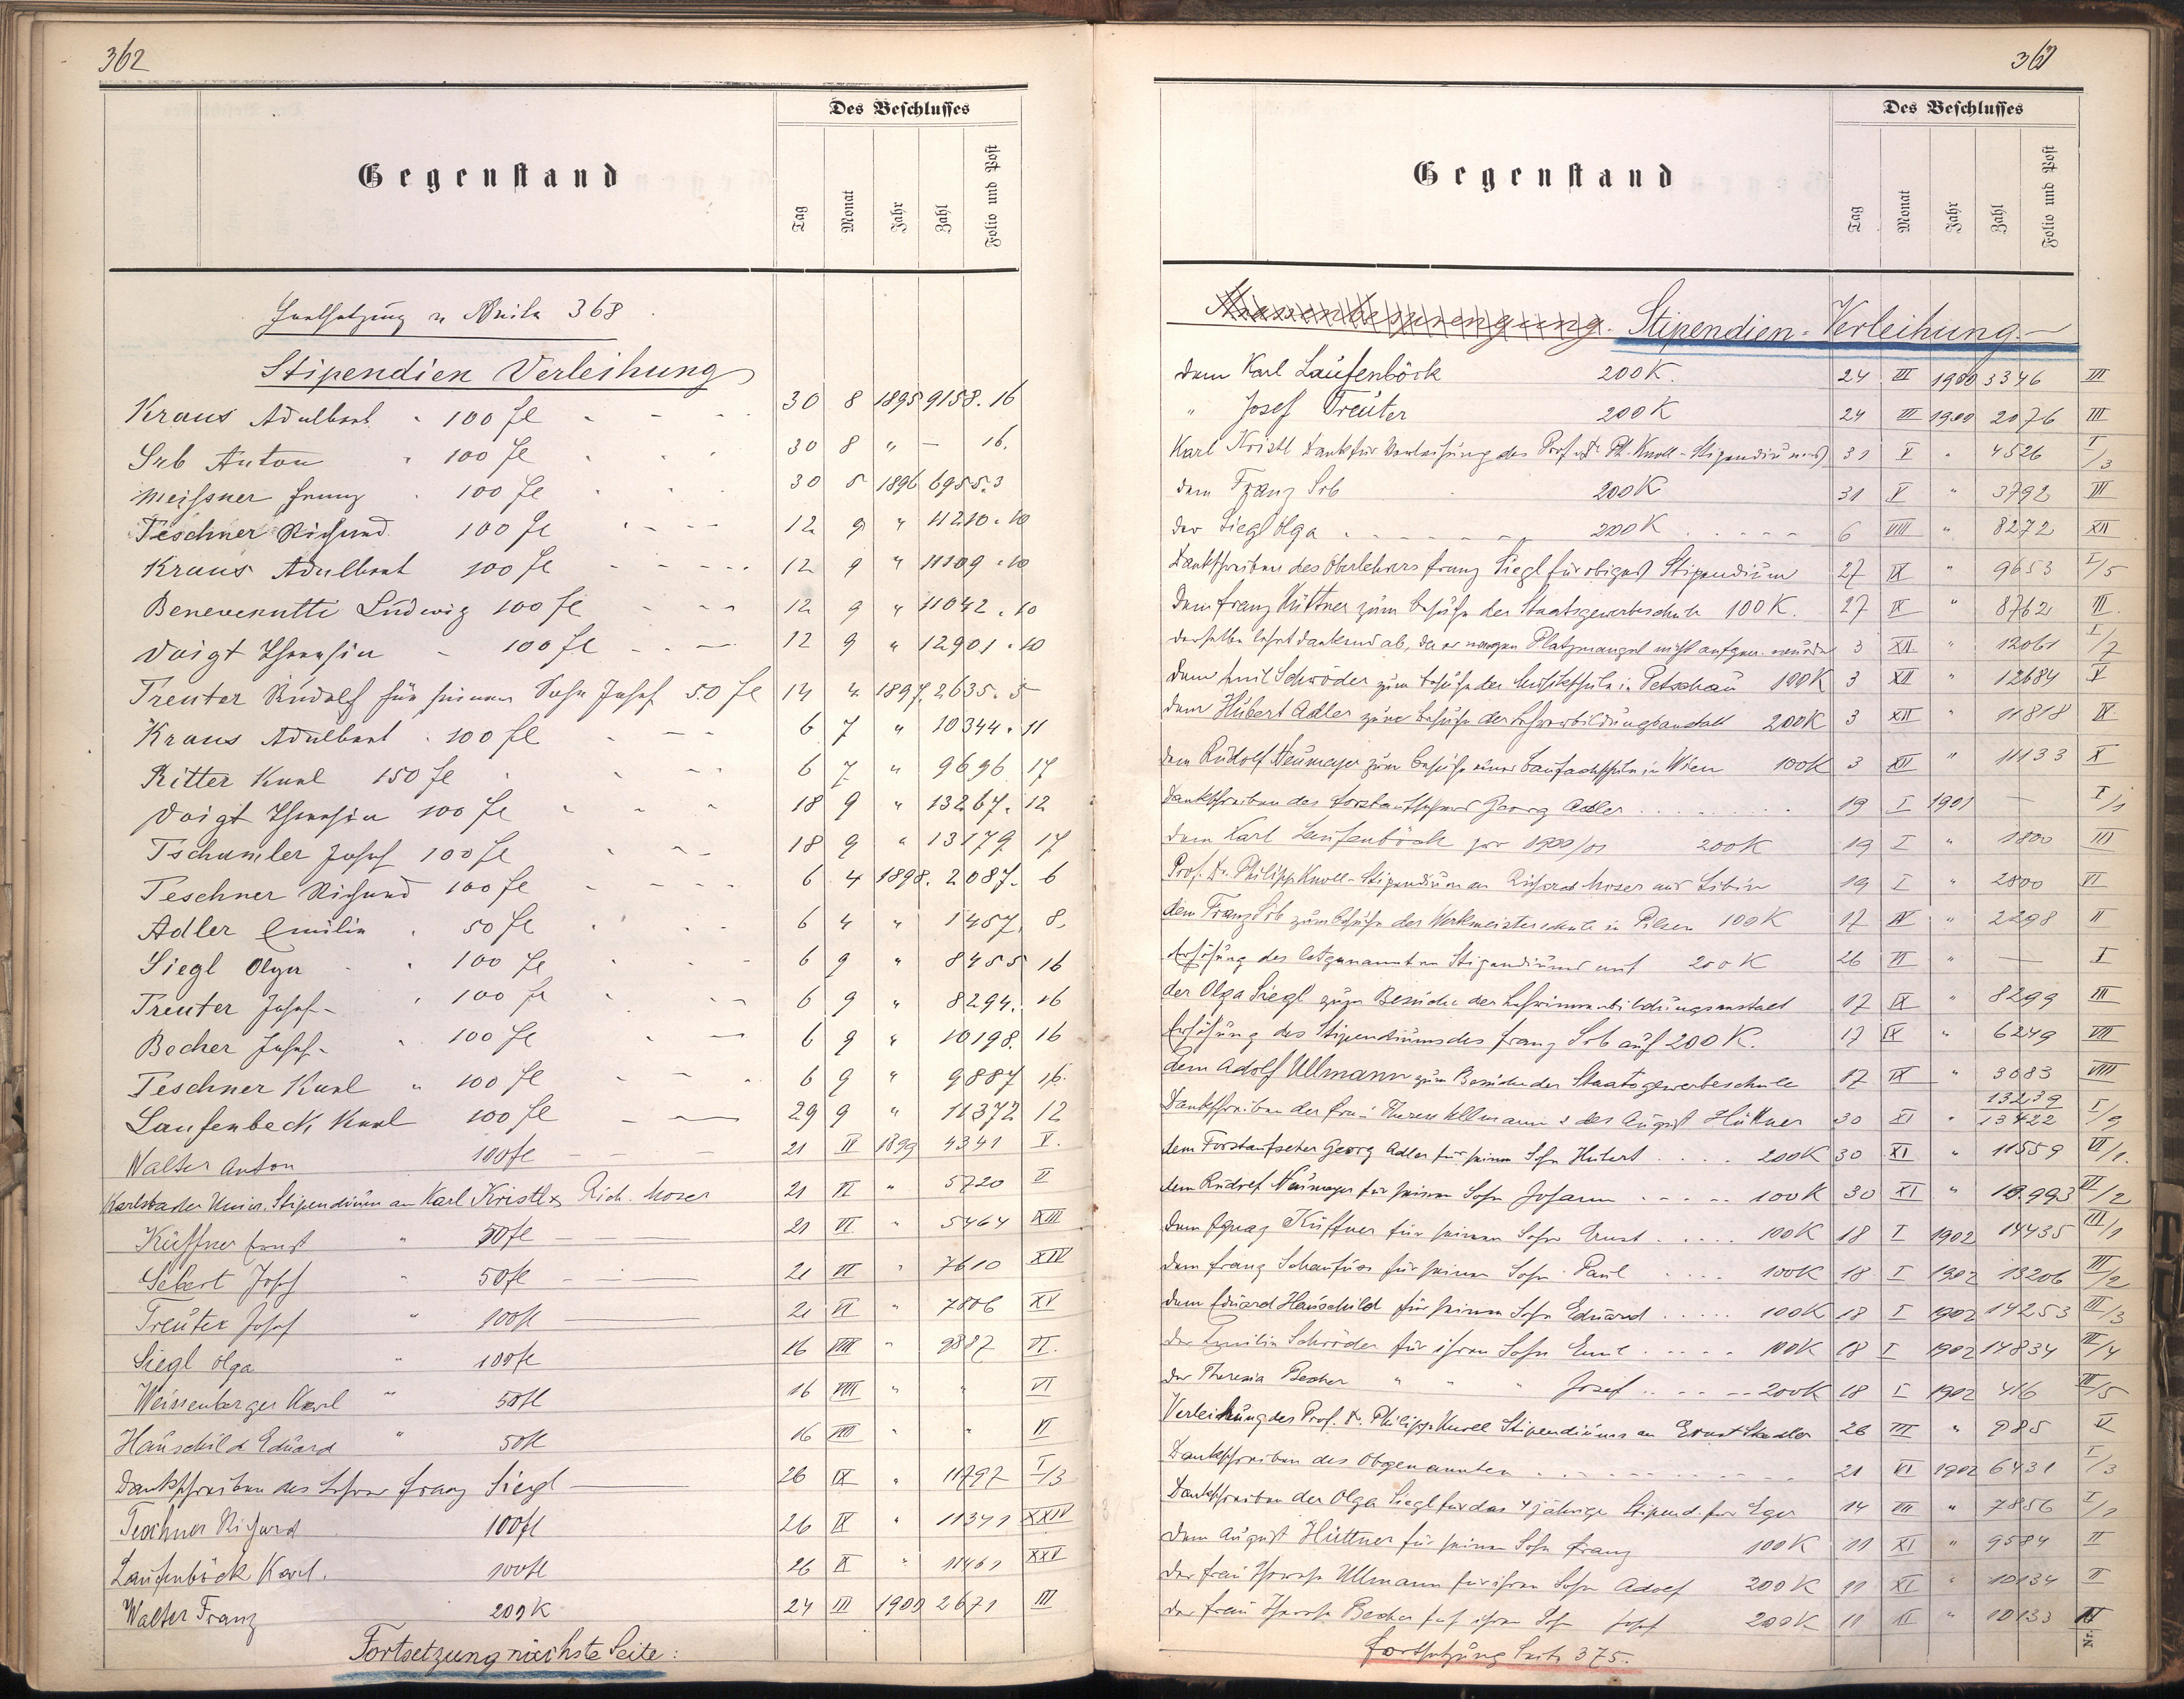 362
Des Beschlusses
Gegenstand
Tag Monat Jahr Zahl Folio und Post
Fortsetzung v Seite 368
Stipendien Verleihung
Kraus Adalbert 100 fl 30 8 1895 9158. 16
Srb Anton 100 fl 30 8 " — 16.
Meißner Franz 100 fl 30 5 1896 6955. 3
Teschner Richard 100 fl 12 9 " 11210. 10
Kraus Adalbert 100 fl 12 9 " 11109. 10
Benevenutti Ludwig 100 fl 12 9 " 11042. 10
Voigt Theresia 100 fl 12 9 " 12901. 10
Treuter Rudolf für seinen Sohn Josef 50 fl 14 4 1897. 2635. 5
Kraus Adalbert 100 fl 6 7 " 10344. 11
Ritter Karl 150 fl 6 7 " 9696 17
Voigt Theresia 100 fl 18 9 " 13267. 12
Tschamler Josef 100 fl 18 9 " 13179 17
Teschner Richard 100 fl 6 4 1898. 2087. 6
Adler Emilie 50 fl 6 4 " 1457. 8.
Siegl Olga 100 fl 6 9 " 8455 16
Treuter Josef 100 fl 6 9 " 8294. 16
Becher Josef 100 fl 6 9 " 10198. 16
Teschner Karl " 100 fl 6 9 " 9887 16.
Laufenbeck Karl 100 fl 29 9 " 11372 12
Walter Anton 100 fl 21 II 1899 4341 V.
Karlsbader Stipendium an Karl Kristl & Rich. Moser 21 VI " 5720 II
Küffner Ernst " 50 fl 21 VI " 5464 XIII
Sebert Josef " 50 fl 21 VI " 7610 XIV
Treuter Josef " 100 fl 21 VI " 7806 XV
Siegl Olga " 100 fl 16 VIII " 9887 VI.
Weissenberger Karl " 50 fl 16 VIII " " VI
Hauschild Eduard " 50 fl 16 VIII " " VI
Dankschreiben des Lehrer Franz Siegl 26 IX " 11797 I/3
Teschner Richard 100 fl 26 IX " 11341 XXIV
Laufenböck Karl. 100 fl 26 IX " 11461 XXV
Walter Franz 200 K 24 III 1900 2671 III
Fortsetzung nächste Seite:
Des Beschlusses
Gegenstand
Tag Monat Jahr Zahl Folio und Post
Stipendien-Verleihung.
Dem Karl Laufenböck 200 K. 24 III 1900 3346 III
" Josef Treuter 200 K 24 III 1900 2076 III
Karl Kristl Dank für Verleihung des Prof. Dr. Ph. Knoll-Stipendiums 31 V " 4526 I/3
Dem Franz Srb 200 K 31 V " 3792 III
Der Siegl Olga 200 K 6 VIII " 8272 XII
Dankschreiben des Oberlehrers Franz Siegl für obiges Stipendium 27 IX " 9653 I/5
Dem Franz Hüttner zum Besuche der Staatsgewerbeschule 100 K. 27 IX " 8762 III.
Derselbe lehnt dankend ab, da er wegen Platzmangel nicht aufgen. wurde 3 XII " 12061 I/7
Dem Emil Schröder zum Besuche der Musikschule in Petschau 100 K 3 XII " 12684 V
Dem Hubert Adler zum Besuche der Lehrerbildungsanstalt 200 K 3 XII " 11818 IX
Dem Rudolf Neumayer zum Besuche einer Baufachschule in Wien 100 K 3 XII " 11133 X
Dankschreiben des Forstaufsehers Georg Adler 19 I 1901 — I/1
Dem Karl Laufenböck pro 1900/01 200 K 19 I " 1800 III
Prof. Dr. Philipp Knoll-Stipendium an Richard Moser aus 19 I " 2800 VI
Dem Franz Srb zum Besuche der Werkmeisterschule in Pilsen 100 K 17 IV " 2298 II
Erhöhung des letztgenannten Stipendiums auf 200 K 26 VI " — I
Der Olga Siegl zum Besuche der Lehrerinnenbildungsanstalt 17 IX " 8299 III
Erhöhung des Stipendiums des Franz Srb auf 200 K. 17 IX " 6249 VII
Dem Adolf Ullmann zum Besuche der Staatsgewerbeschule 17 IX " 3083 VIII
Dankschreiben der Frau Therese Ullmann & des August Hüttner 30 XI " 13239 13422 I/9
Dem Forstaufseher Georg Adler für seinen Sohn Hubert 200 K 30 XI " 11559 VI/1.
Dem Rudolf Neumayer für seinen Sohn Johann 100 K 30 XI " 10.993 VI/2
Dem Ignaz Küffner für seinen Sohn Ernst 100 K 18 I 1902 14435 III/1
Dem Franz Schaufuss für seinen Sohn Paul 100 K 18 I 1902 13206 III/2
Dem Eduard Hauschild für seinen Sohn Eduard 100 K 18 I 1902 14253 III/3
Der Emilie Schröder für ihren Sohn Emil 100 K 18 I 1902 14834 III/4
Der Theresia Becher " " " Josef 200 K 18 I 1902 416 III/5
Verleihung des Prof. Dr. Philipp Knoll Stipendiums an Ernst Stadler 26 III " 985 V
Dankschreiben des Obgenannten 21 VI 1902 6431 I/3
Dankschreiben der Olga Siegl für das 4 jährige Stipend. für Eger 14 VII " 7856 I/1
Dem August Hüttner für seinen Sohn Franz 100 K 11 XI " 9584 II
Der Frau Therese Ullmann für ihren Sohn Adolf 200 K 11 XI " 10134 II
Der Frau Therese Becher für ihren Sohn Josef 200 K 11 XI " 10133 II
Fortsetzung Seite 375.
Nr.